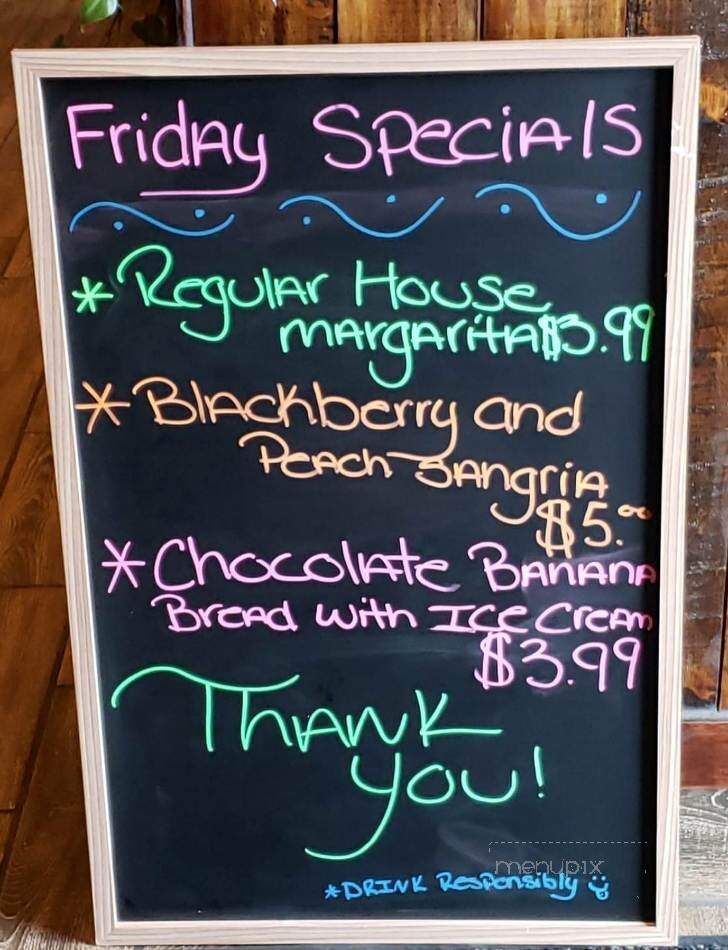 Friday Specials
* Regular House
margarita $3.99
* Blackberry and
Peach Sangria
$5.00
* Chocolate Banana
Bread with Ice Cream
$3.99
Thank
you!
menupix
*DRINK Responsibly